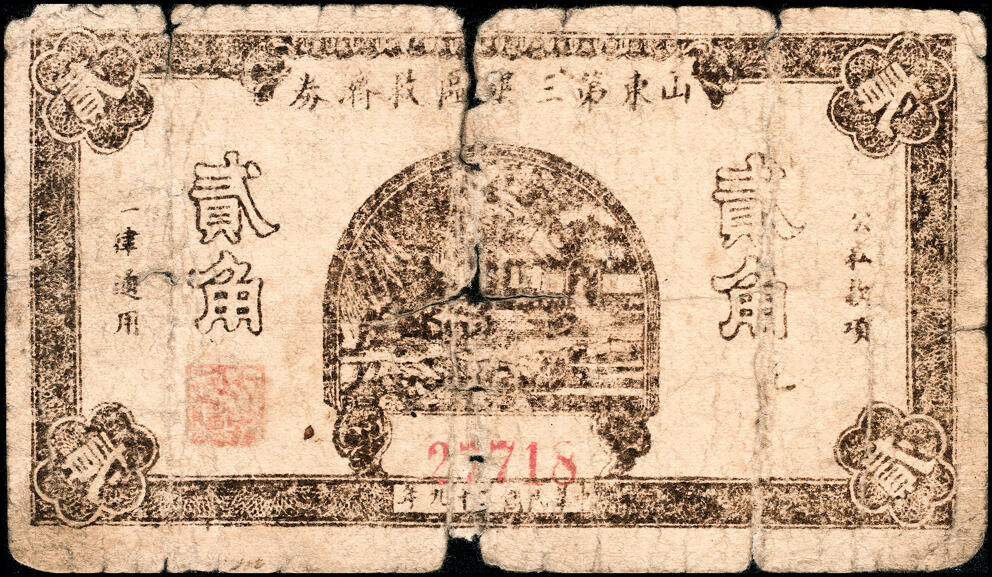 山東第三區救濟券
貳
貳
貳角
貳角
公私款項
一律通用
27718
民國十九年
貳
貳